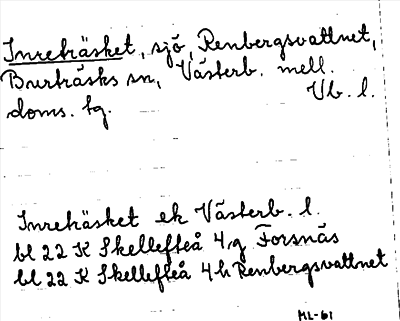 Inreträsket, sjö, Renbergsvattnet,
Burträsks sn, Västerb. mell.
doms. tg. Vb. l.
Inreträsket ek Västerb. l.
bl 22 K Skellefteå 4,g Forsnäs
bl 22 K Skellefteå 4 h Renbergsvattnet
ML-61